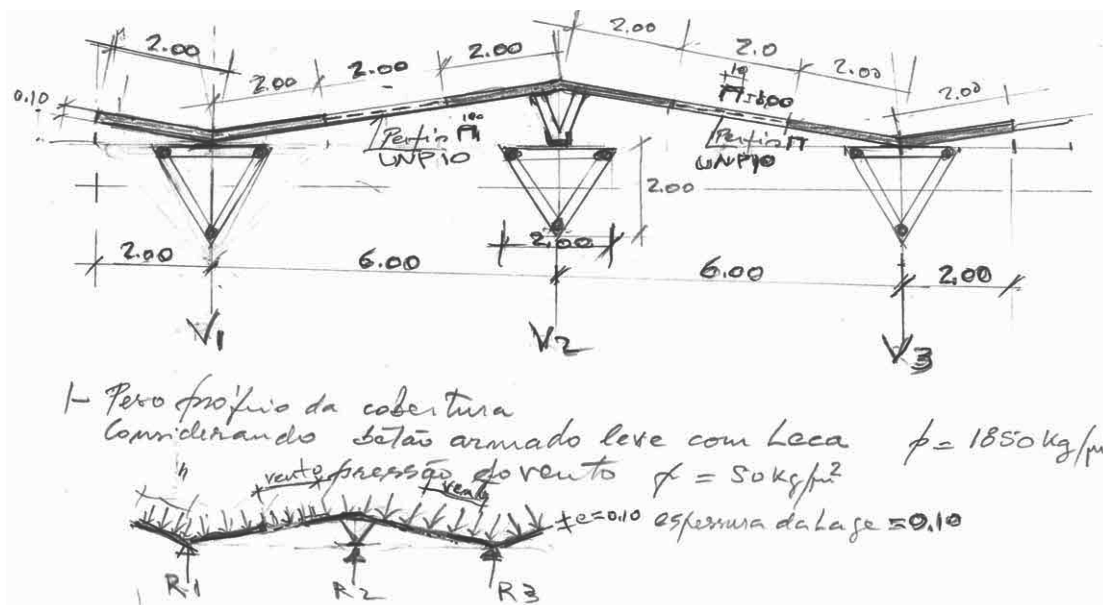 2.00 2.00 2.00 2.00 2.00 2.0 2.00 2.00
0.10
UNP10
UNP10
2.00
2.00 6.00 2.00 6.00 2.00
V1 V2 V3
1- Peso próprio da cobertura
Considerando betão armado leve com Leca p = 1850 kg/m
pressão do vento p = 50 kg/m²
h vento vento
e=0.10 espessura da Lage = 0.10
R1 R2 R3